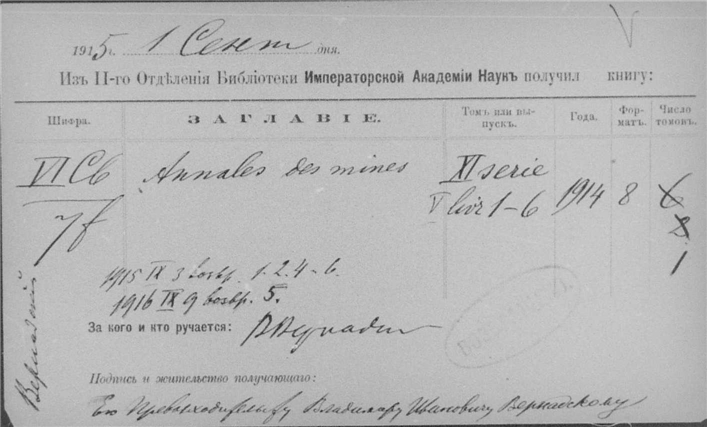 V
1915 г. 1 Сент дня.
Изъ II-го Отдѣленія Библіотеки Императорской Академіи Наукъ получилъ книгу:
Шифра. ЗАГЛАВІЕ. Томъ или выпускъ. Года. Форматъ. Число томовъ.
VI Cb Annales des mines XI serie 1914 8 6
7f V livr 1-6 2
1
1915 IX 3 возвр. 1. 2. 4-6.
1916 IX 9 возвр. 5.
За кого и кто ручается:
Вернадскій
Подпись и жительство получающаго:
Его Превосходительству Владимиру Ивановичу Вернадскому